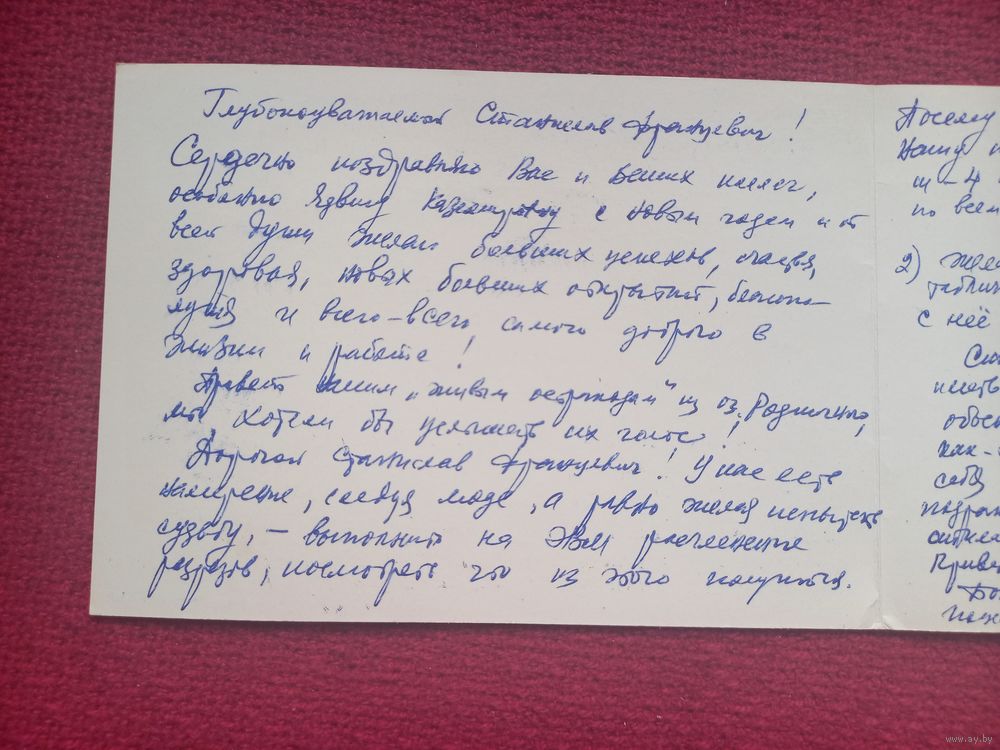 Глубокоуважаемый Станислав Францевич!
Сердечно поздравляю Вас и Ваших коллег,
особенно Ядвигу Казимировну с новым годом и от
всей души желаю больших успехов, счастья,
здоровья, новых больших открытий,
и всего-всего самого доброго в
жизни и работе!
Привет Вашим „живым остракодам" из оз.
мы хотели бы услышать их голос!
Дорогой Станислав Францевич! У нас есть
намерение, следуя моде, а равно желая испытать
судьбу, - выполнить на ЭВМ расчленение
разрезов, посмотреть что из этого получится.
Посему
по всем
2)
с неё
как-
себя
www.ay.by